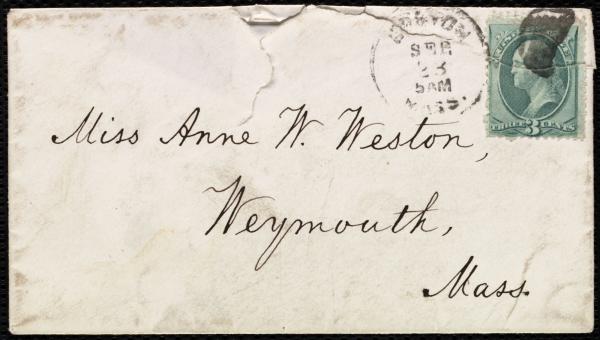 SEP
23
5AM
MASS.
THREE 3 CENTS
Miss Anne W. Weston,
Weymouth,
Mass.